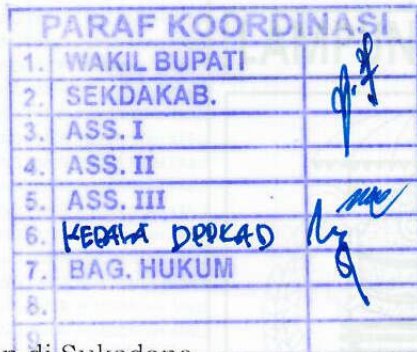 PARAF KOORDINASI
1. WAKIL BUPATI
2. SEKDAKAB.
3. ASS. I
4. ASS. II
5. ASS. III
6. KEPALA DPPKAD
7. BAG. HUKUM
8.
9.
di Sukadana